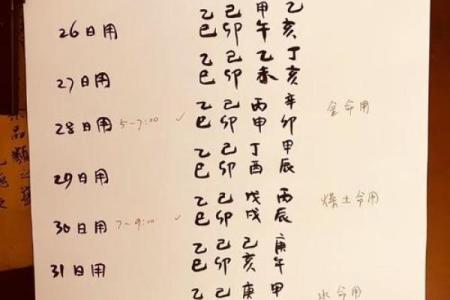 乙 己 甲 乙
26日用 巳 卯 午 亥
乙 己 乙 丁
27日用 巳 卯 未 亥
乙 己 丙 辛
28日用 5-7:00 ✓ 巳 卯 申 卯 金命用
乙 己 丁 甲
29日用 巳 卯 酉 辰
乙 己 戊 丙
30日用 7-9:00 ✓ 巳 卯 戌 辰 燥土命用
乙 己 己 庚
31日用 巳 卯 亥 午
乙 己 庚 甲
水命用
品類之